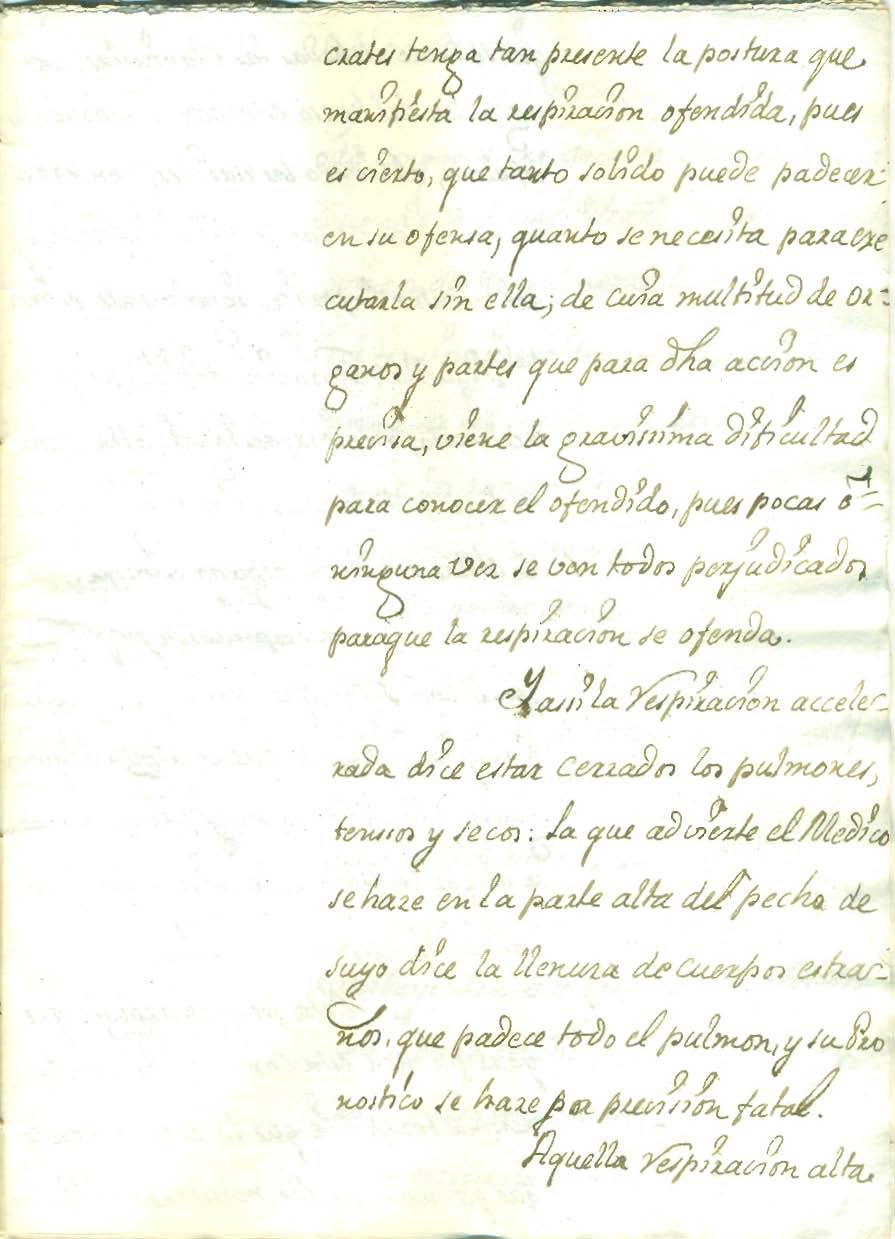 crates tenga tan presente la postura que
manifiesta la respiracion ofendida, pues
es cierto, que tanto solido puede padecer
en su ofensa, quanto se necesita para exe
cutarla sin ella; de cuia multitud de or-
ganos y partes que para dha accion es
precisa, viene la gravisima dificultad
para conocer el ofendido, pues pocas ó
ninguna vez se ven todos perjudicados
paraque la respiracion se ofenda.
Y asi la respiracion accele-
rada dice estar cerrados los pulmones,
tensos y secos: la que advierte el Medico
se haze en la parte alta del pecho de
suyo dice la llenura de cuerpos estra-
ños, que padece todo el pulmon, y su Pro
nostico se haze por precision fatal.
Aquella respiracion alta